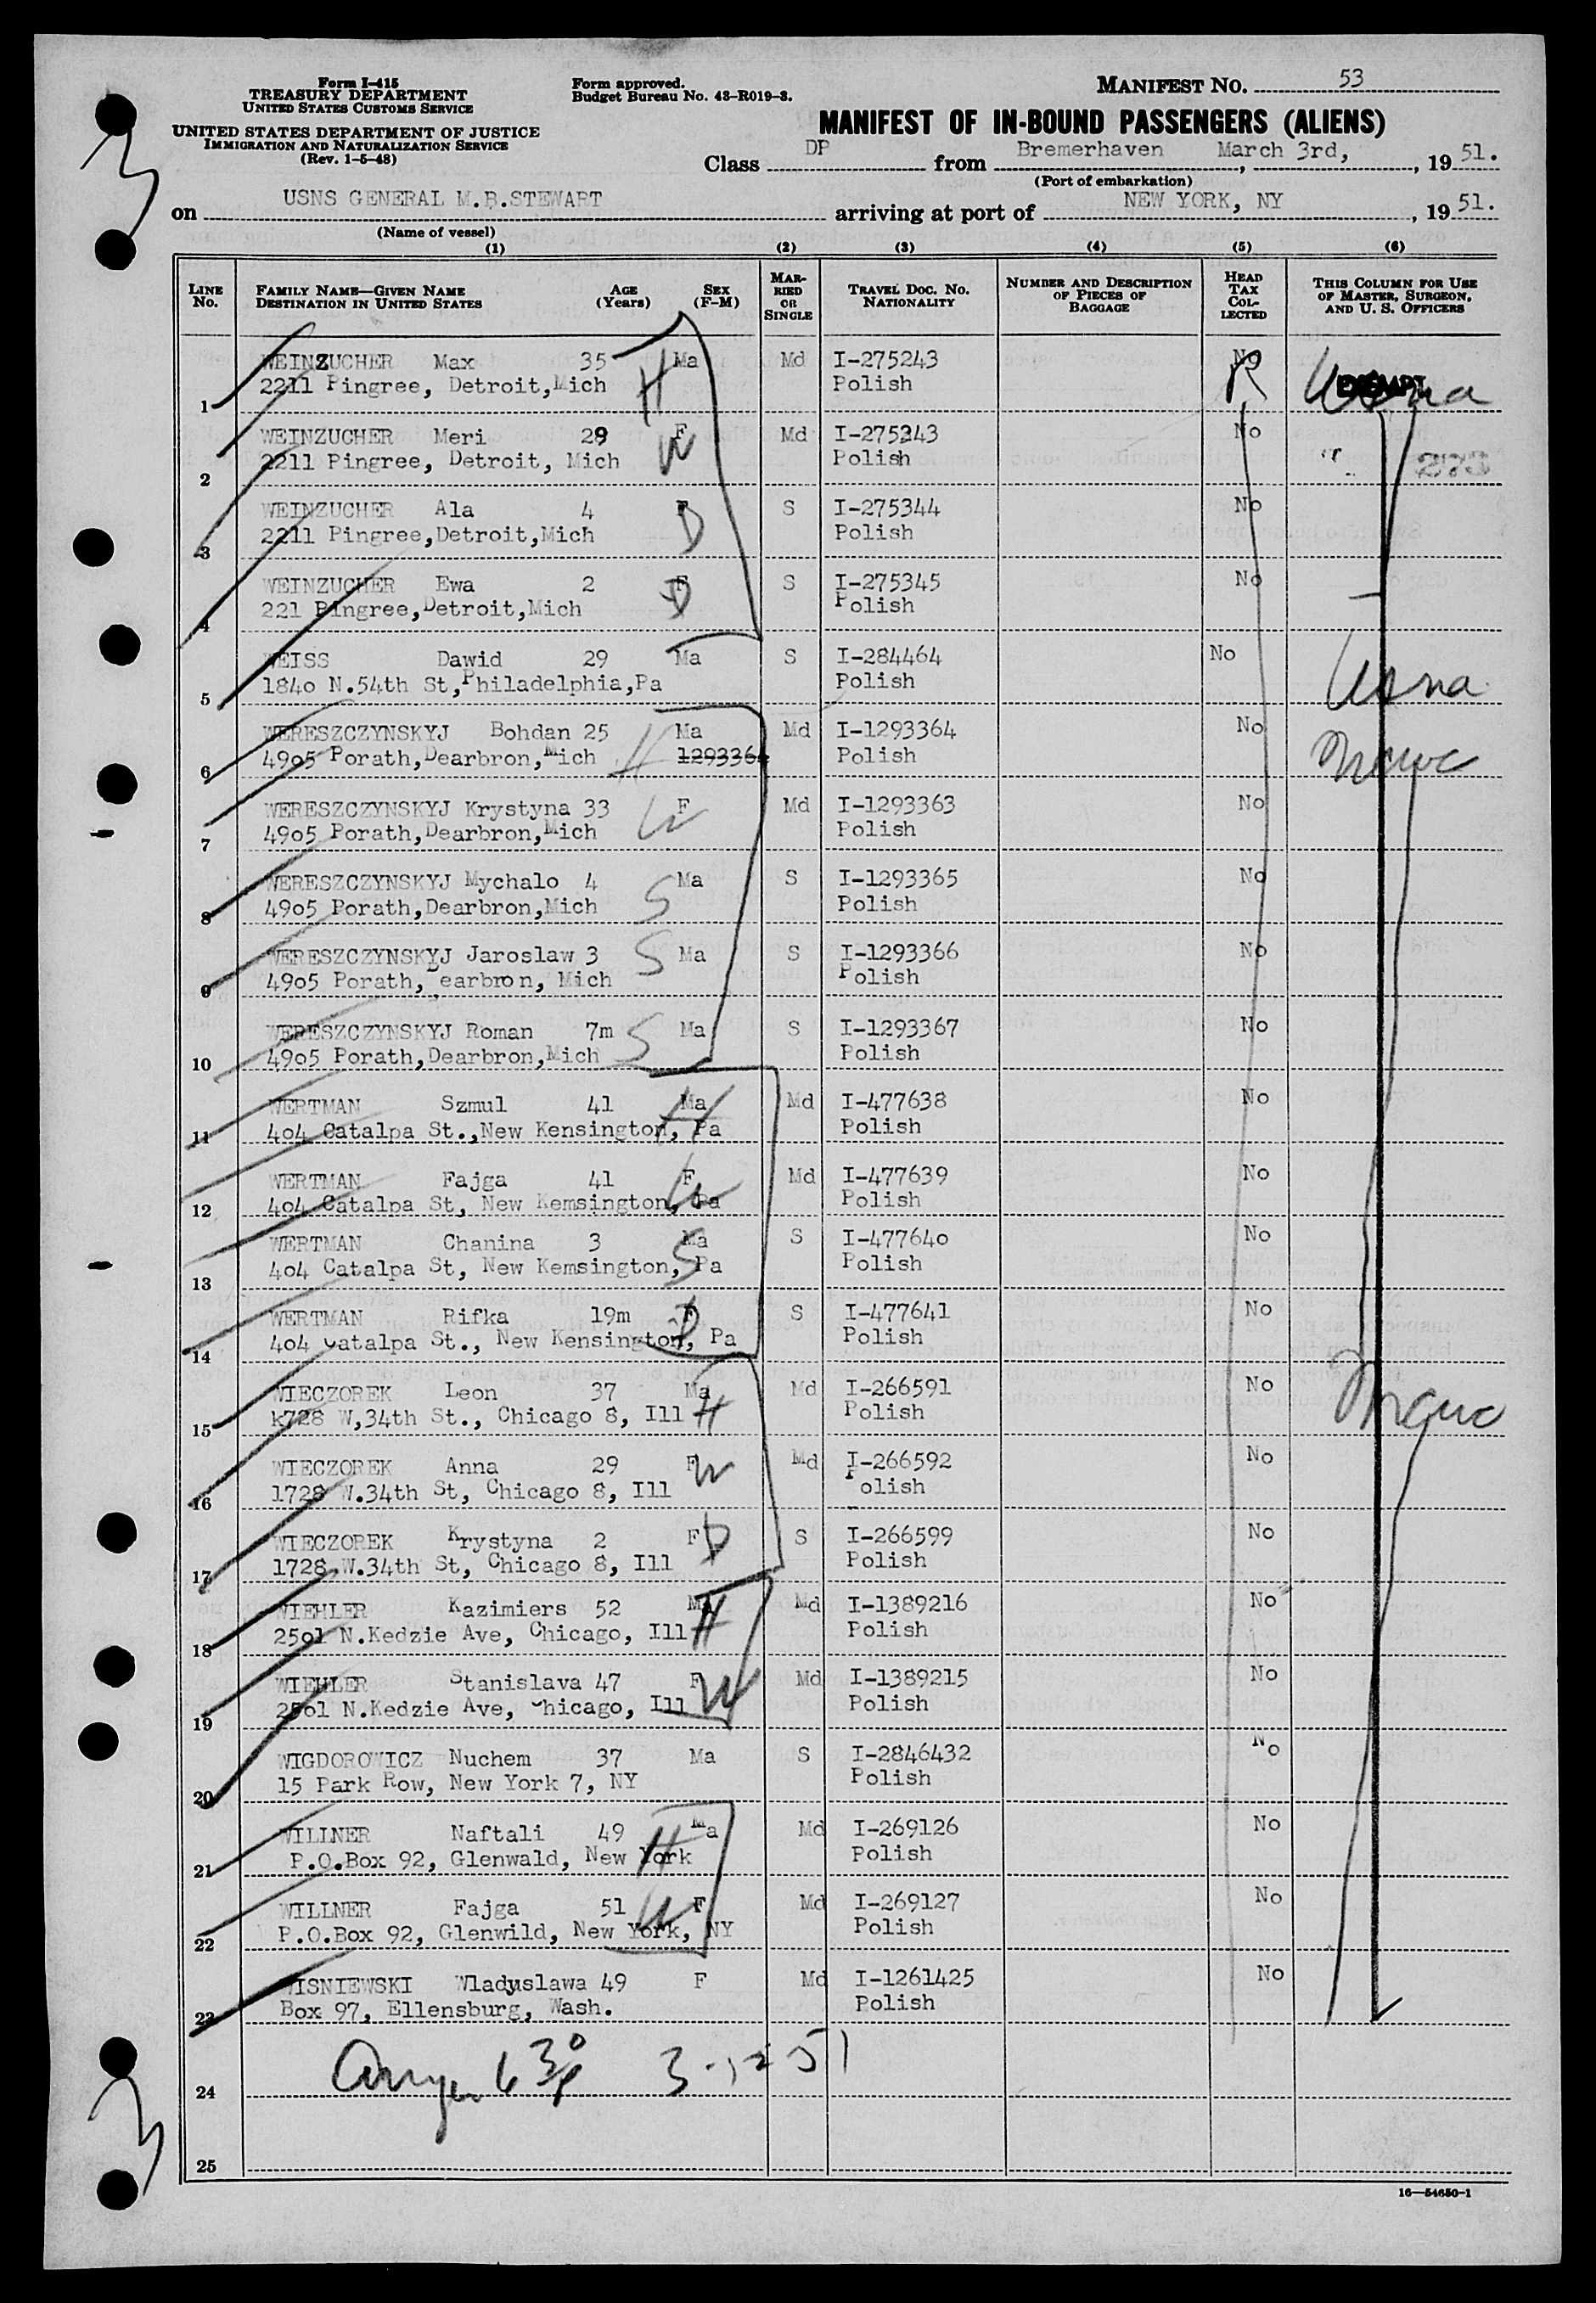 Form I-415
TREASURY DEPARTMENT
UNITED STATES CUSTOMS SERVICE
UNITED STATES DEPARTMENT OF JUSTICE
IMMIGRATION AND NATURALIZATION SERVICE
(Rev. 1-5-48)
Form approved.
Budget Bureau No. 43-R019-3.
MANIFEST NO. 53
MANIFEST OF IN-BOUND PASSENGERS (ALIENS)
Class DP from Bremerhaven, March 3rd, , 19 51.
(Port of embarkation)
on USNS GENERAL M.B.STEWART arriving at port of NEW YORK, NY , 19 51.
(Name of vessel)
(1) (2) (3) (4) (5) (6)
LINE No. FAMILY NAME—GIVEN NAME DESTINATION IN UNITED STATES AGE (Years) SEX (F-M) MARRIED OR SINGLE TRAVEL DOC. NO. NATIONALITY NUMBER AND DESCRIPTION OF PIECES OF BAGGAGE HEAD TAX COLLECTED THIS COLUMN FOR USE OF MASTER, SURGEON, AND U. S. OFFICERS
WEINZUCHER Max 35 Ma H Md I-275243 No Usna
1 2211 Pingree, Detroit,Mich Polish EXEMPT
WEINZUCHER Meri 29 F W Md I-275243 No
2 2211 Pingree, Detroit, Mich Polish 273
WEINZUCHER Ala 4 F D S I-275344 No
3 2211 Pingree,Detroit,Mich Polish
WEINZUCHER Ewa 2 F D S I-275345 No
4 221 Pingree,Detroit,Mich Polish
WEISS Dawid 29 Ma S I-284464 No
5 1840 N.54th St,Philadelphia,Pa Polish Usna
WERESZCZYNSKYJ Bohdan 25 Ma Md I-1293364 No
6 4905 Porath,Dearbron,Mich H 1293364 Polish
WERESZCZYNSKYJ Krystyna 33 F W Md I-1293363 No
7 4905 Porath,Dearbron,Mich Polish
WERESZCZYNSKYJ Mychalo 4 Ma S S I-1293365 No
8 4905 Porath,Dearbron,Mich Polish
WERESZCZYNSKYJ Jaroslaw 3 S Ma S I-1293366 No
9 4905 Porath, Dearbron, Mich Polish
WERESZCZYNSKYJ Roman 7m S Ma S I-1293367 No
10 4905 Porath,Dearbron,Mich Polish
WERTMAN Szmul 41 Ma H Md I-477638 No
11 404 Catalpa St.,New Kensington, Pa Polish
WERTMAN Fajga 41 F W Md I-477639 No
12 404 Catalpa St, New Kemsington, Pa Polish
WERTMAN Chanina 3 Ma S S I-477640 No
13 404 Catalpa St, New Kemsington, Pa Polish
WERTMAN Rifka 19m F D S I-477641 No
14 404 Catalpa St., New Kensington, Pa Polish
WIECZOREK Leon 37 Ma Md I-266591 No
15 k728 W,34th St., Chicago 8, Ill H Polish
WIECZOREK Anna 29 F W Md I-266592 No
16 1728 W.34th St, Chicago 8, Ill Polish
WIECZOREK Krystyna 2 F D S I-266599 No
17 1728 W.34th St, Chicago 8, Ill Polish
WIEHLER Kazimiers 52 Ma H Md I-1389216 No
18 2501 N.Kedzie Ave, Chicago, Ill Polish
WIEHLER Stanislava 47 F W Md I-1389215 No
19 2501 N.Kedzie Ave, Chicago, Ill Polish
WIGDOROWICZ Nuchem 37 Ma S I-2846432 No
20 15 Park Row, New York 7, NY Polish
WILLNER Naftali 49 Ma H Md I-269126 No
21 P.O.Box 92, Glenwald, New York Polish
WILLNER Fajga 51 F W Md I-269127 No
22 P.O.Box 92, Glenwild, New York, NY Polish
WISNIEWSKI Wladyslawa 49 F Md I-1261425 No
23 Box 97, Ellensburg, Wash. Polish
3-12 51
24
25
16—54650-1